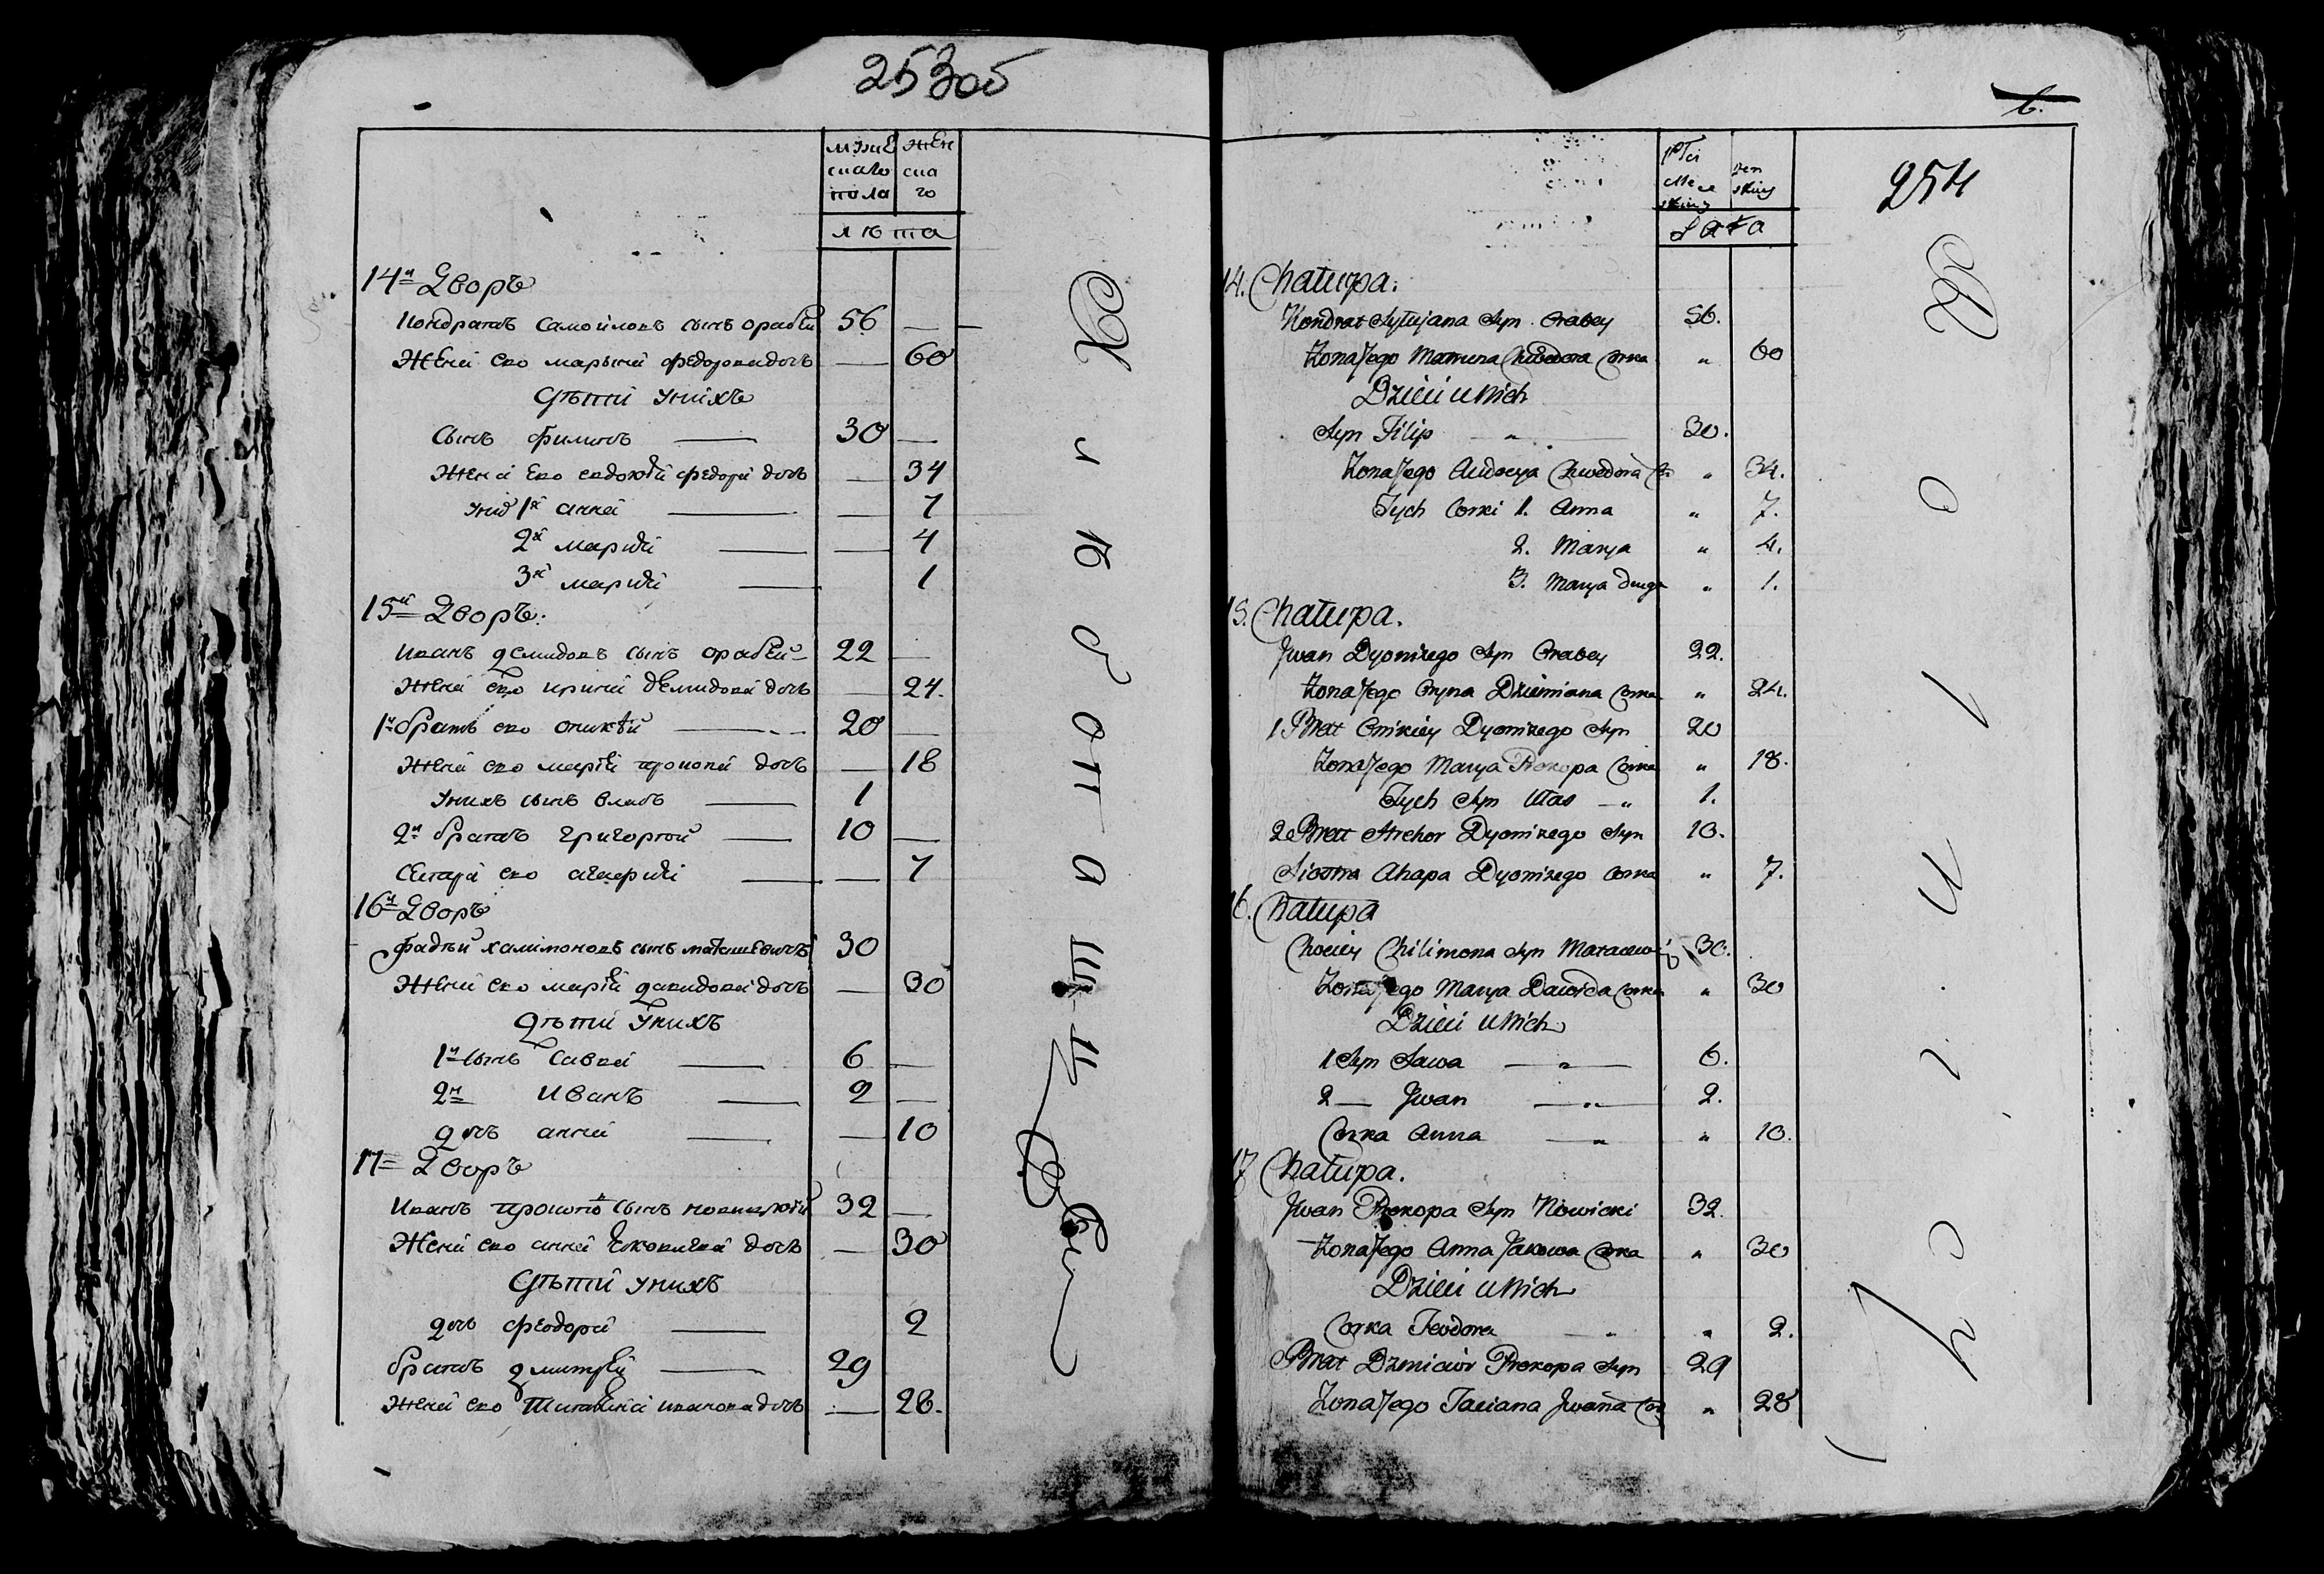 253об
мужескаго пола
женскаго
лѣта
14й Дворъ
Кондратъ Самойловъ сынъ орабей 56
Жена его марьяна федорова дочь 60
Дѣти у нихъ
сынъ филипъ 30
Жена его евдокия федора дочь 34
у них 1я анна 7
2я мария 4
3я мария 1
15й Дворъ.
иванъ демидовъ сынъ орабей 22
Жена его ирина демидова дочь 24.
1й братъ его оникѣй 20
Жена его мария прокопа дочь 18
у нихъ сынъ власъ 1
2й братъ григорией 10
сестра его агаерия 7
16й Дворъ
фадѣй халимоновъ сынъ маташевичъ 30
Жена его мария давидова дочь 30
Дѣти у нихъ
1й сынъ савка 6
2й иванъ 2
дочь анна 10
17 Дворъ
иванъ прокопо сынъ новицкий 32
Жена его анна 30
Дѣти у нихъ
дочь феодора 2
братъ дмитрей 29
Жена его татьяна иванова дочь 28.
6.
254
Płci Męskiey
Żenskiey
Lata
14. Chałupa.
Kondrat Syn Orabey 56.
Zona Jego Chwedora Corka " 60
Dzieci u Nich
Syn Filip " 30.
Zona Jego Audocya Chwedora Co " 34.
Tych Corki 1. Anna " 7.
2. Marya " 4.
3. Marya Druga " 1.
15. Chałupa.
Jwan Dyonizego Syn Orabey 22.
Zona Jego Oryna Dziemiana Corka " 24.
1 Brat Onikiey Dyonizego Syn 20
Zona Jego Marya Prokopa Corka " 18.
Tych Syn Ułas " 1.
2 Brat Hrehor Dyonizego Syn 10.
Siostra Ahapa Dyonizego Corka " 7.
16. Chałupa
Chociey Chilimona Syn 30.
Zona Jego Marya Dawida Corka " 30
Dzieci u Nich
1 Syn Sawa " 6.
2 Jwan " 2.
Corka Anna " " 10.
17 Chałupa.
Jwan Prokopa Syn Nowicki 32.
Zona Jego Anna Jakowa Corka " 30
Dzieci u Nich
Corka Teodora " " 2.
Brat Prokopa Syn 29
Zona Jego Taciana Jwana Cor " 28